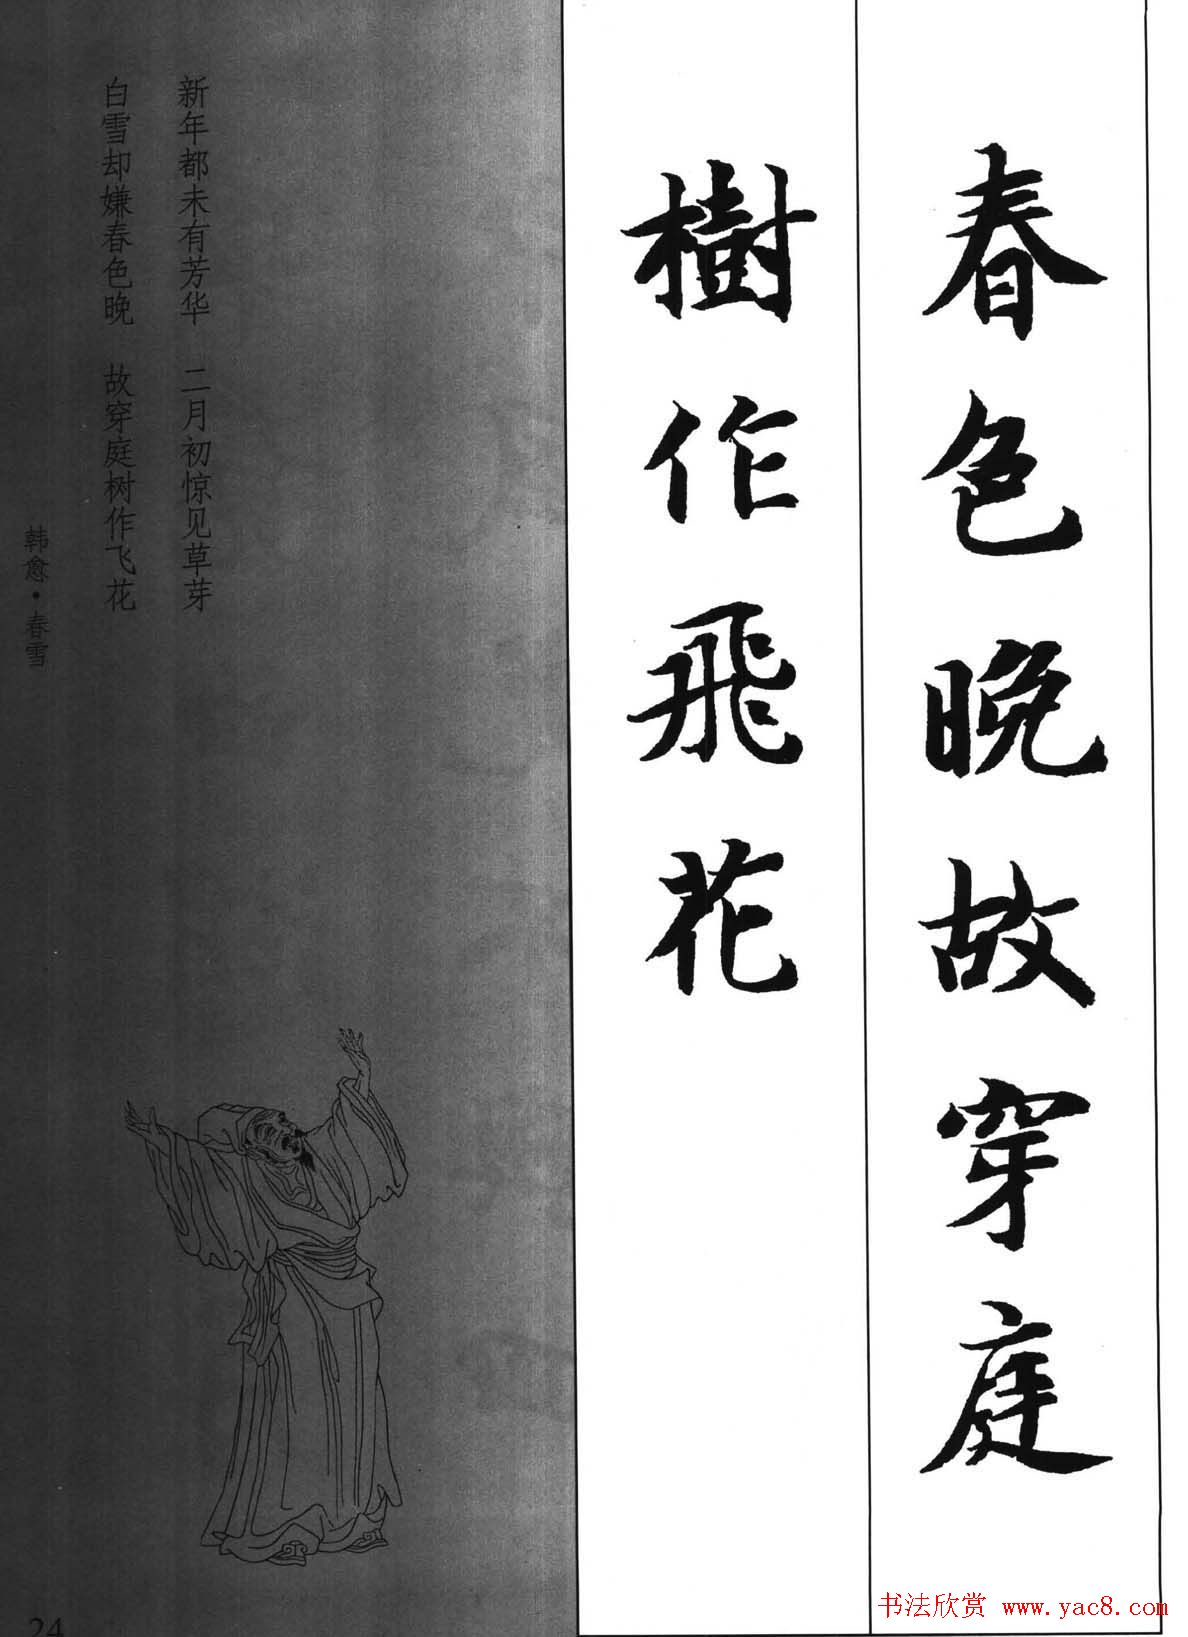 春色晚故穿庭
樹作飛花
新年都未有芳华 二月初惊见草芽
白雪却嫌春色晚 故穿庭树作飞花
韩愈·春雪
24
书法欣赏 www.yac8.com